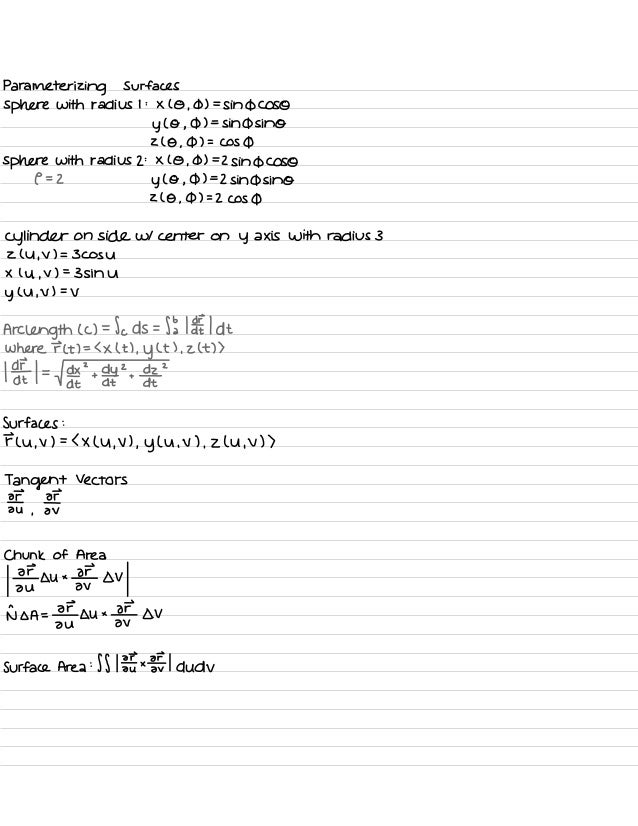 Parameterizing Surfaces
sphere with radius 1: x(θ,φ)=sinφcosθ
y(θ,φ)=sinφsinθ
z(θ,φ)=cosφ
sphere with radius 2: x(θ,φ)=2sinφcosθ
ρ=2 y(θ,φ)=2sinφsinθ
z(θ,φ)=2cosφ
cylinder on side w/ center on y axis with radius 3
z(u,v)=3cosu
x(u,v)=3sinu
y(u,v)=v
Arclength (c) = ∫c ds = ∫a^b |dr⃗/dt| dt
where r⃗(t)=<x(t), y(t), z(t)>
|dr⃗/dt| = √(dx/dt² + dy/dt² + dz/dt²)
Surfaces:
r⃗(u,v)=<x(u,v), y(u,v), z(u,v)>
Tangent Vectors
∂r⃗/∂u, ∂r⃗/∂v
Chunk of Area
|∂r⃗/∂u Δu × ∂r⃗/∂v Δv|
N̂ΔA = ∂r⃗/∂u Δu × ∂r⃗/∂v Δv
Surface Area: ∫∫ |∂r⃗/∂u × ∂r⃗/∂v| dudv